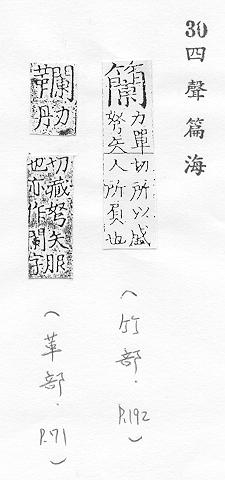 30 四聲篇海
籣 力單切所以盛
弩矢人所負也
(竹部.P.192)
韊 力丹
切藏弩矢服
也亦作闌字
(革部.P.71)